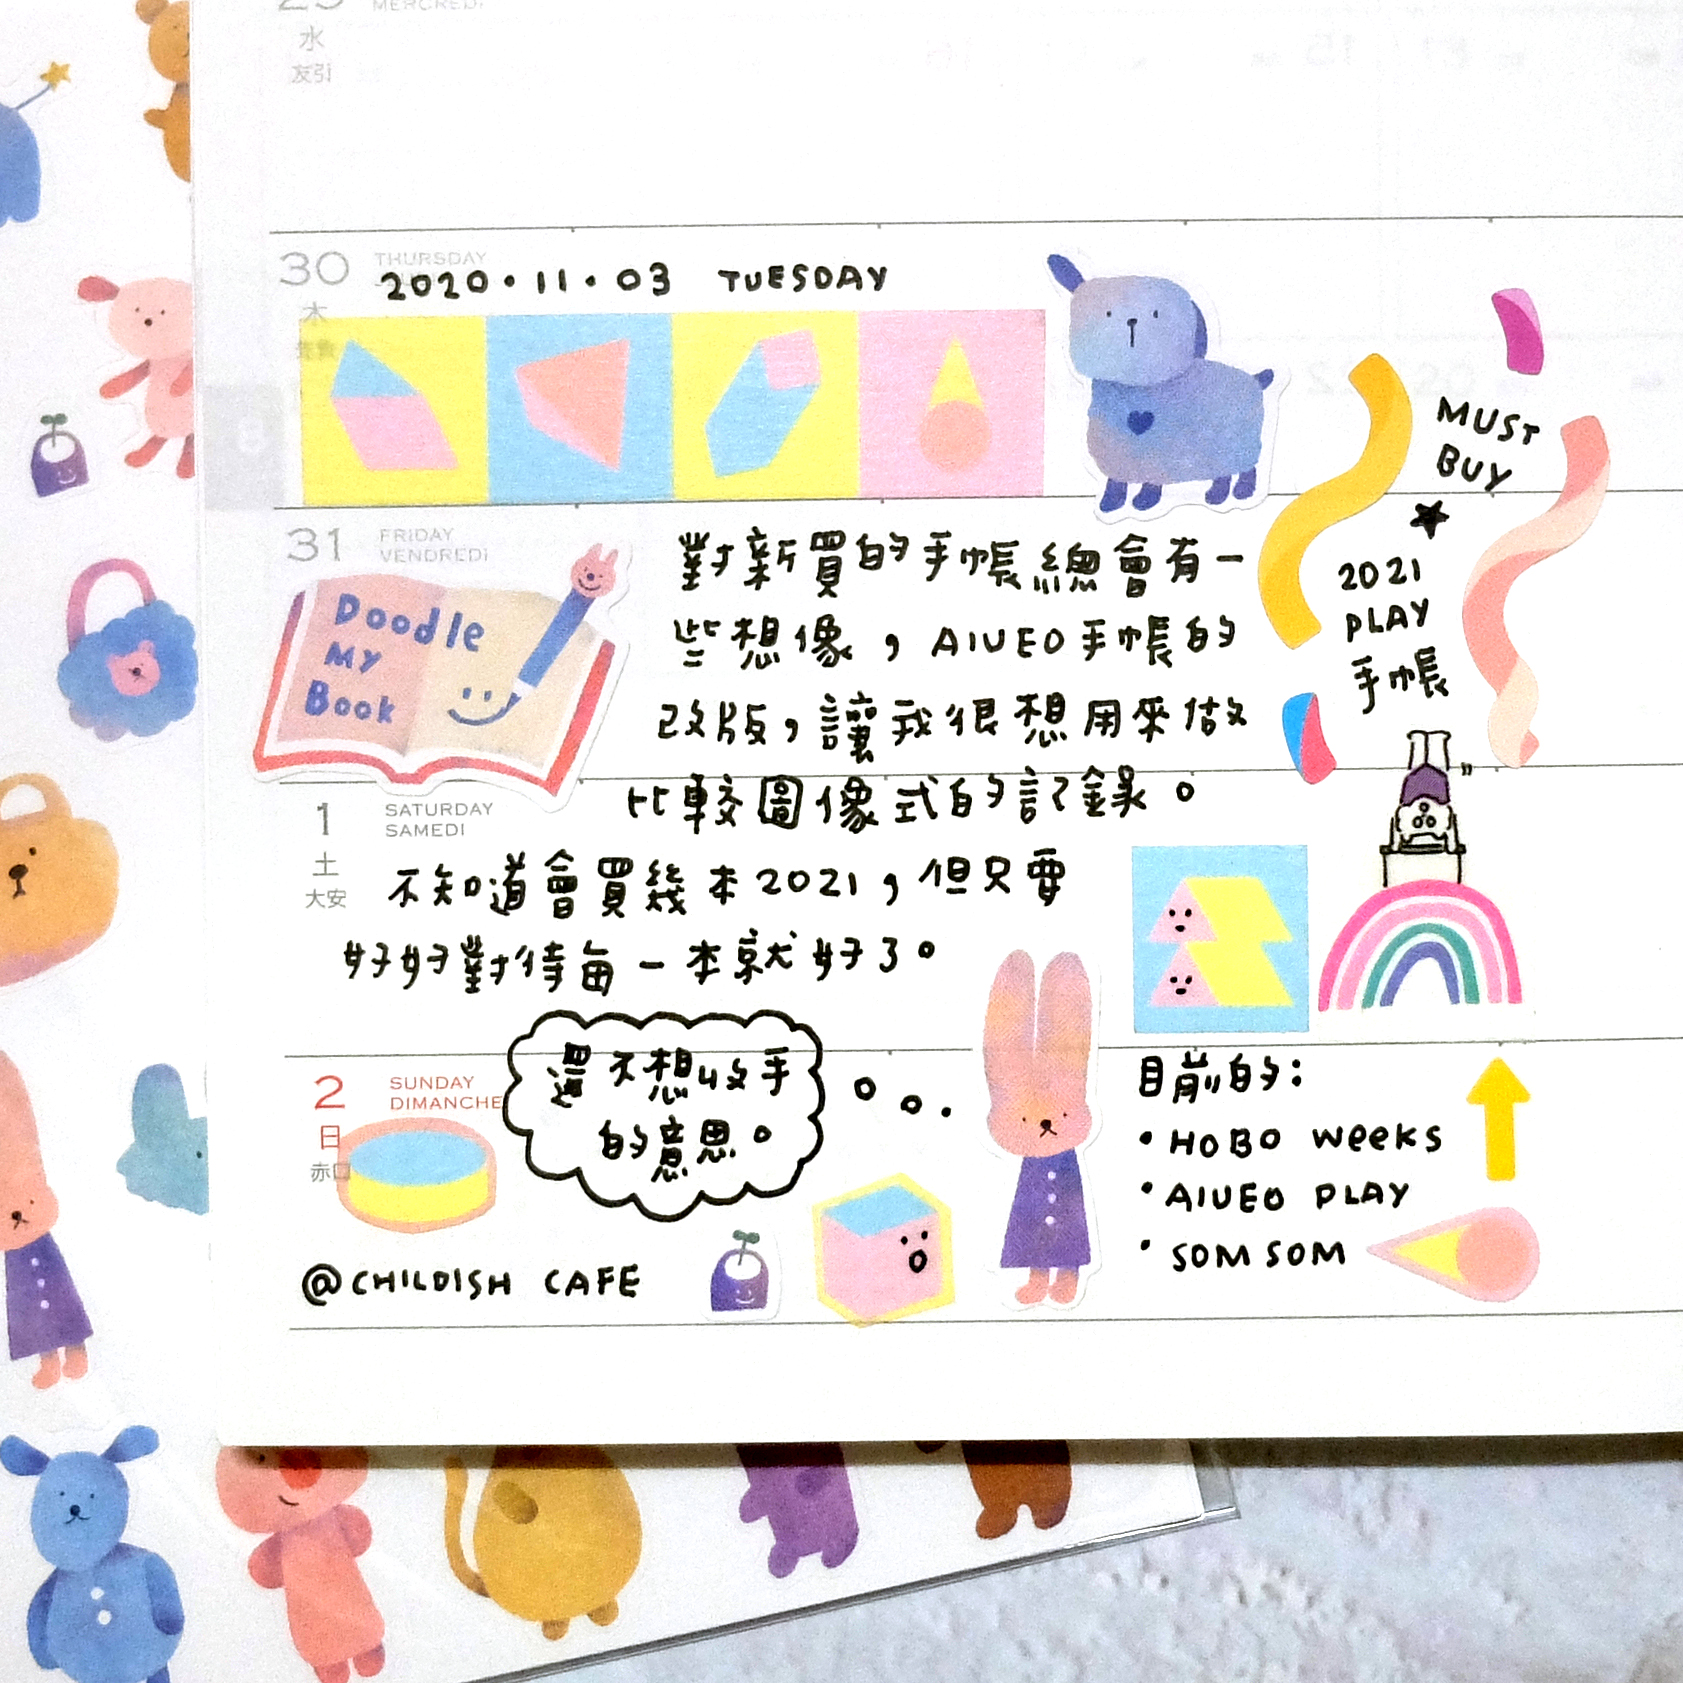 MERCREDI
水
友引
30 THURSDAY
木
2020・11・03 TUESDAY
31 FRIDAY
VENDREDI
Doodle
My
Book
對新買的手帳總會有一
些想像，AIUEO手帳的
改版，讓我很想用來做
比較圖像式的記錄。
MUST
BUY
★
2021
PLAY
手帳
1 SATURDAY
SAMEDI
土
大安
不知道會買幾本2021，但只要
好好對待每一本就好了。
2 SUNDAY
DIMANCHE
日
赤口
還不想收手
的意思。
@CHILDISH CAFE
目前的：
• HOBO Weeks
• AIUEO PLAY
• SOMSOM